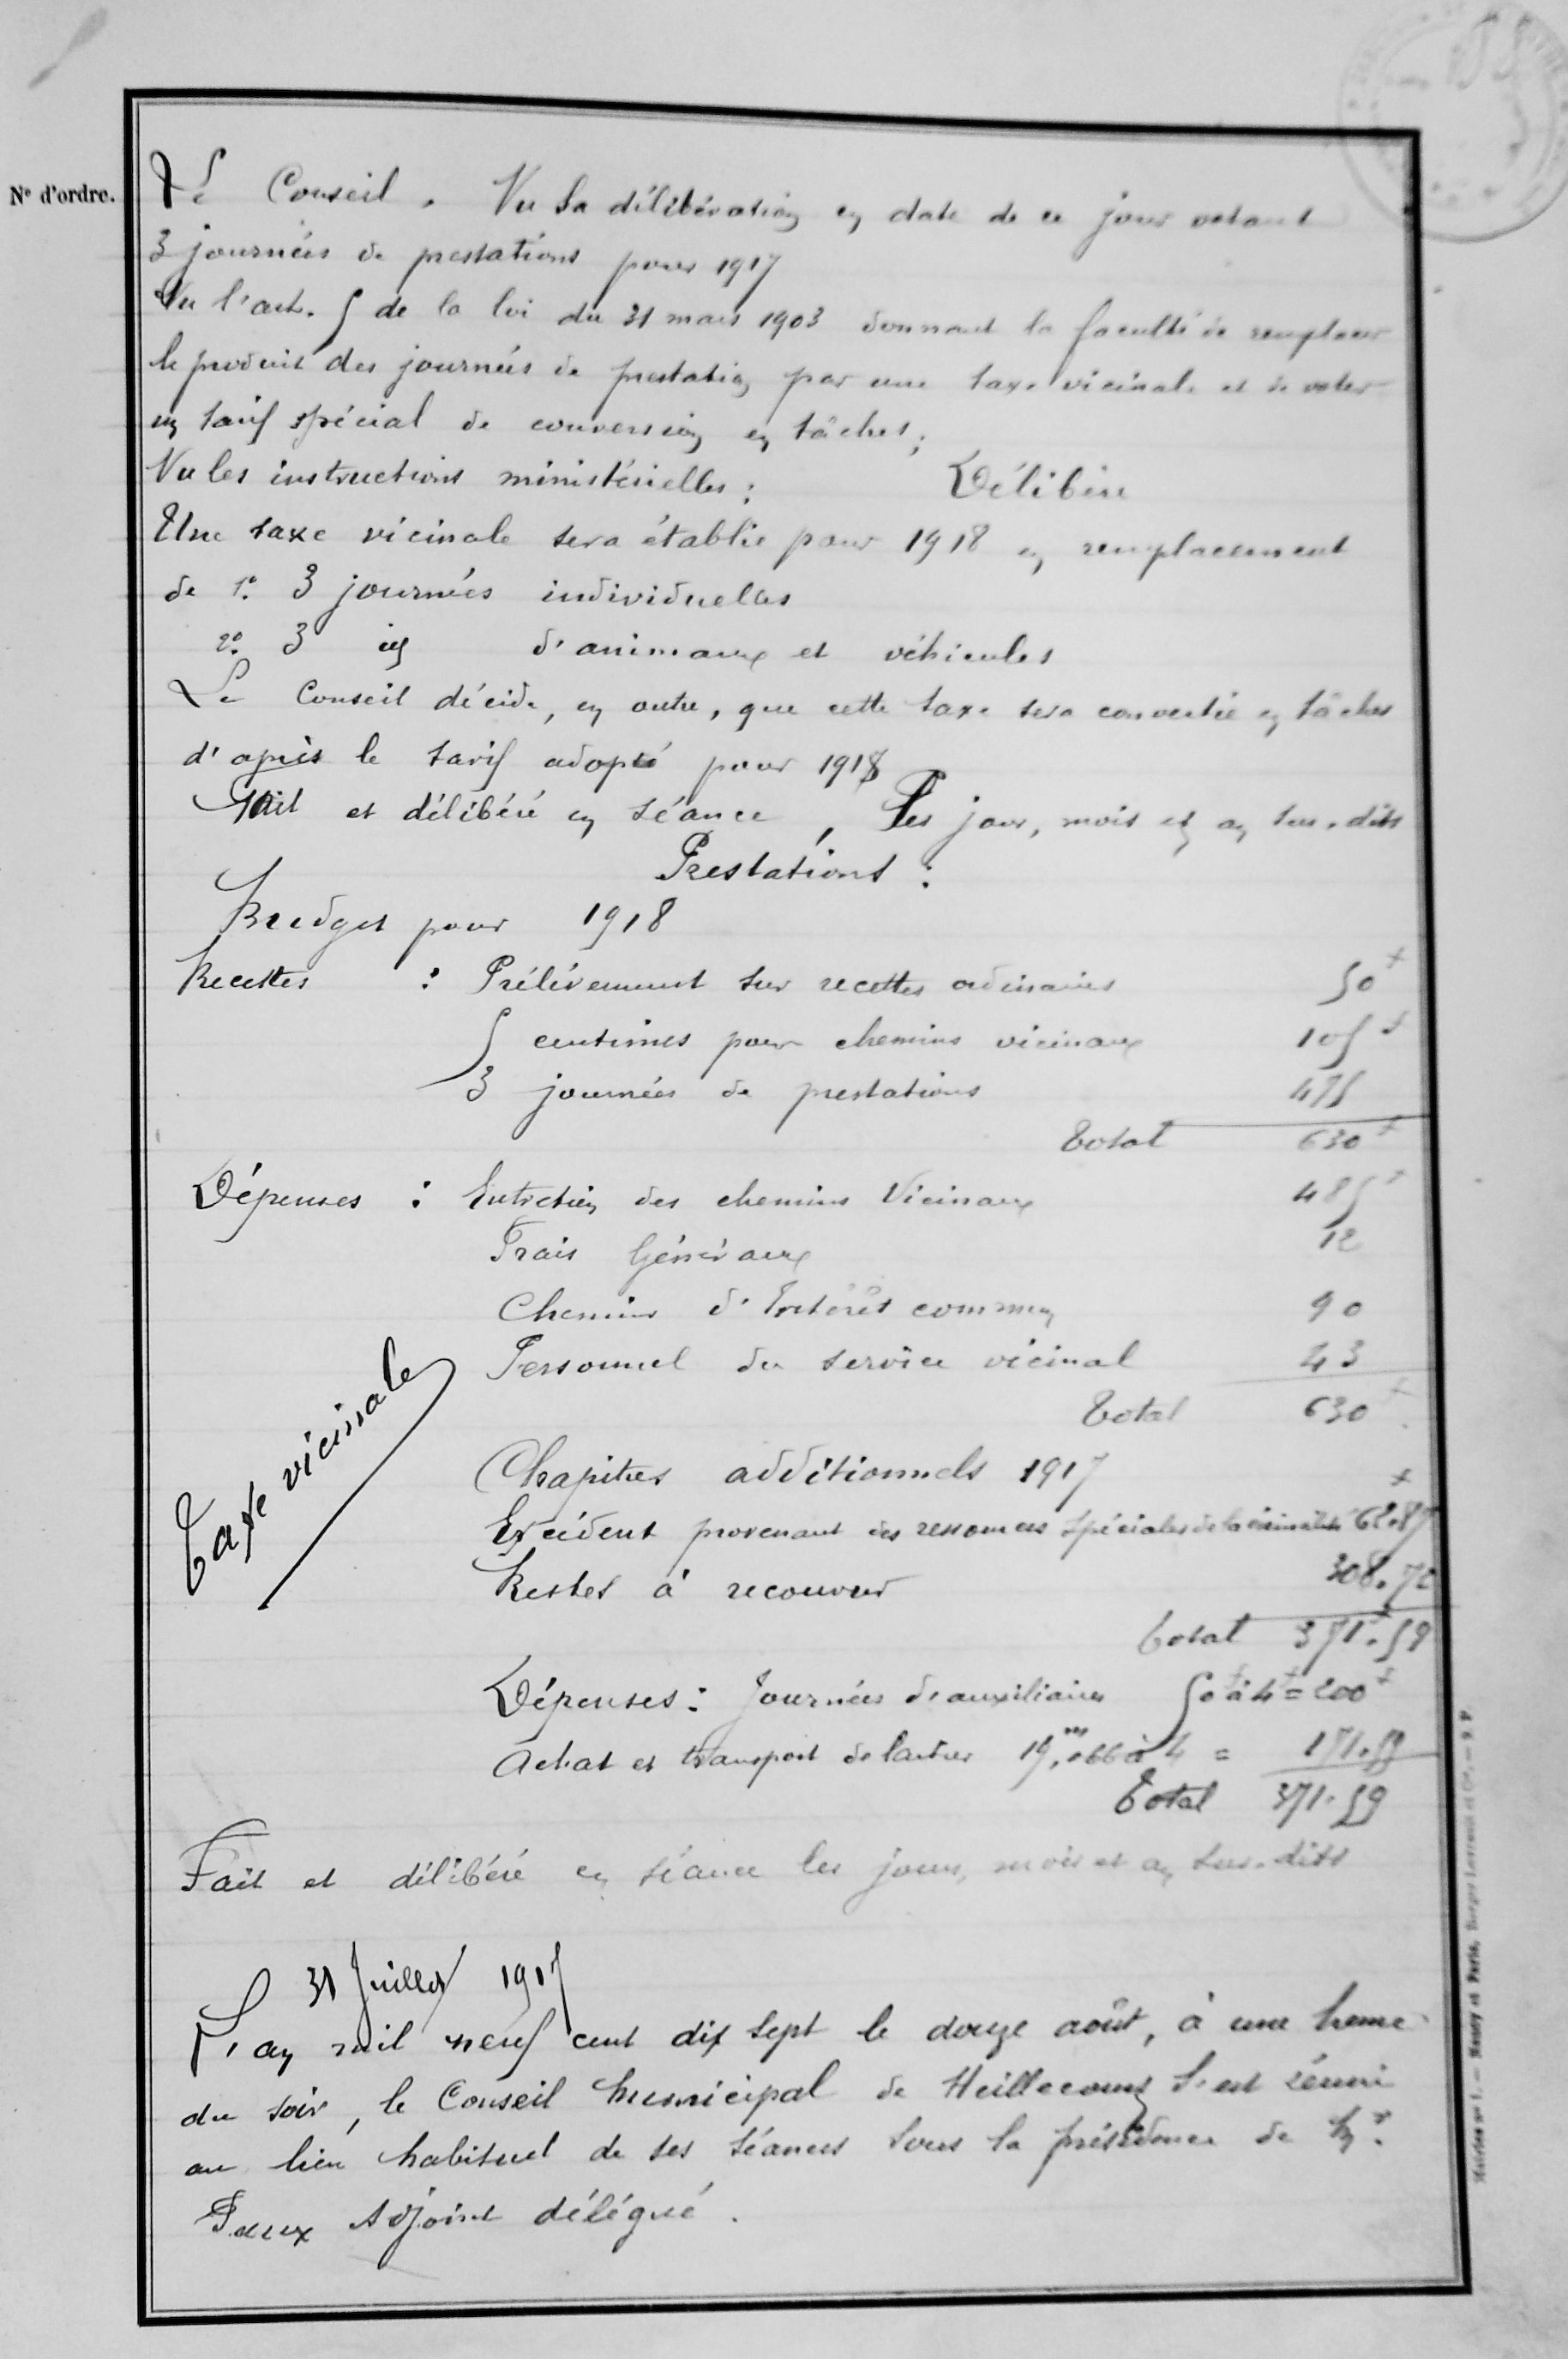 N° d'ordre.
Le Conseil. Vu la délibération en date de ce jour votant
3 journées de prestations pour 1917
Vu l'art. 5 de la loi du 31 mars 1903 donnant la faculté de remplacer
le produit des journées de prestation par une taxe vicinale et de voter
un tarif spécial de conversion en tâches;
Vu les instructions ministérielles : Délibère
Une taxe vicinale sera établie pour 1918 en remplacement
de 1° 3 journées individuelles
2° 3 id d'animaux et véhicules
Le Conseil décide, en outre, que cette taxe sera convertie en tâches
d'après le tarif adopté pour 1918
Fait et délibéré en séance, les jour, mois et an sus-dits
Prestations :
Budget pour 1918
Recettes : Prélèvement sur recettes ordinaires 50 f
5 centimes pour chemins vicinaux 105 f
3 journées de prestations 475
Total 630 f
Dépenses : Entretien des chemins Vicinaux 485 f
Frais Généraux 12
Chemins d'Intérêt commun 90
Personnel du service vicinal 43
Total 630 f
Taxe vicinale
Chapitres additionnels 1917
Excédent provenant des ressources spéciales de la vicinalité 62.87
Restes à recouvrer 308.72
Total 371.59
Dépenses : Journées d'auxiliaires 50 f à 4 f = 200 f
Achat et transport de laitier 19,066 à 4 = 171.59
Total 371.59
Fait et délibéré en séance les jour, mois et an sus-dits
31 Juillet 1917
L'an mil neuf cent dix sept le douze août, à une heure
du soir, le Conseil Municipal de Heillecourt s'est réuni
au lieu habituel de ses séances sous la présidence de Mr.
Adjoint délégué.